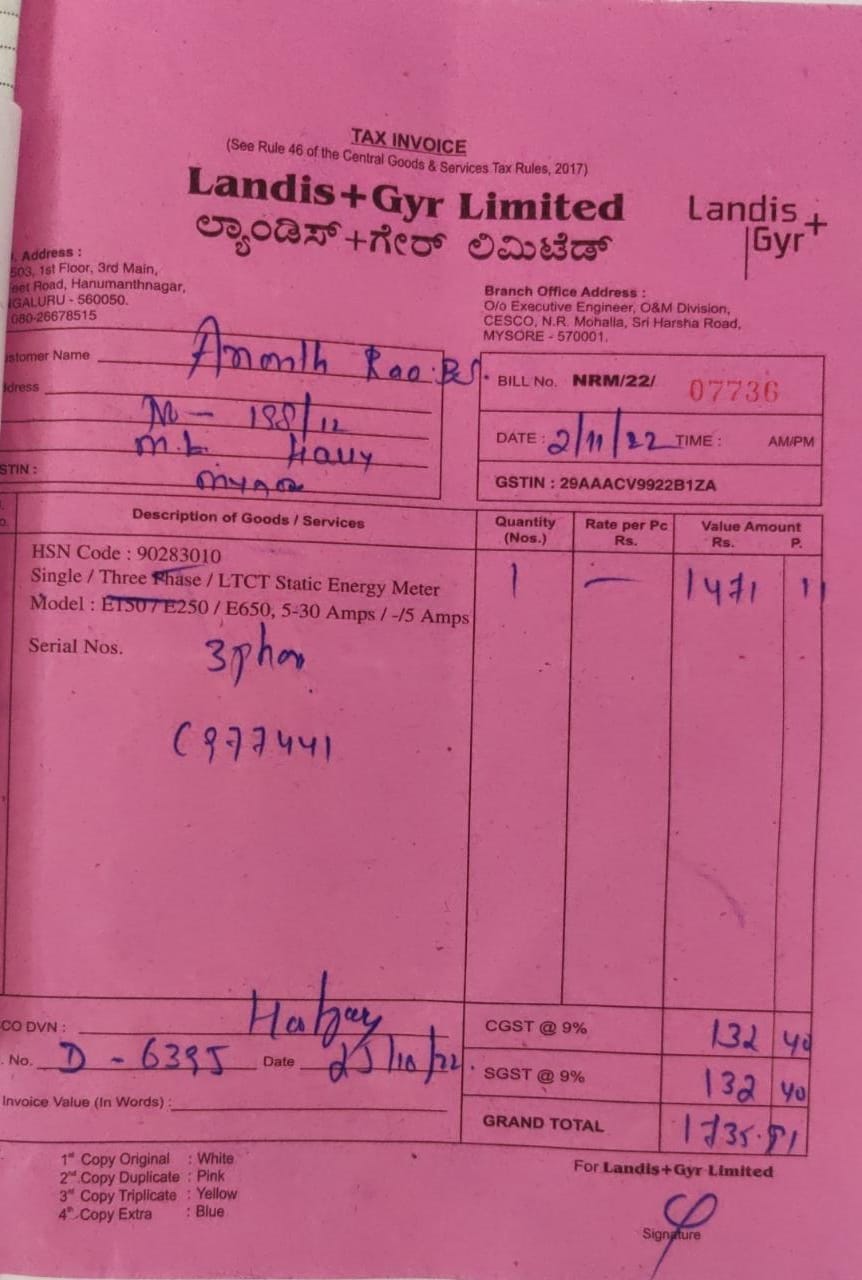 TAX INVOICE
(See Rule 46 of the Central Goods & Services Tax Rules, 2017)
Landis+Gyr Limited
ಲ್ಯಾಂಡಿಸ್+ಗೇರ್ ಲಿಮಿಟೆಡ್
Landis+
Gyr
. Address :
503, 1st Floor, 3rd Main,
eet Road, Hanumanthnagar,
GALURU - 560050.
080-26678515
Branch Office Address :
O/o Executive Engineer, O&M Division,
CESCO, N.R. Mohalla, Sri Harsha Road,
MYSORE - 570001.
stomer Name Ananth Rao.
ddress
No - 198/12
M.L
STIN :
BILL No. NRM/22/ 07736
DATE : 2/11/22 TIME : AM/PM
GSTIN : 29AAACV9922B1ZA
Description of Goods / Services Quantity (Nos.) Rate per Pc Rs. Value Amount Rs. P.
HSN Code : 90283010
Single / Three Phase / LTCT Static Energy Meter 1 — 1471 11
Model : E150 / E250 / E650, 5-30 Amps / -/5 Amps
Serial Nos. 3 phas
C977441
CO DVN :
. No. D - 6395 Date 25/10/22.
Invoice Value (In Words) :
CGST @ 9% 132 40
SGST @ 9% 132 40
GRAND TOTAL 1735.91
1st Copy Original : White
2nd Copy Duplicate : Pink
3rd Copy Triplicate : Yellow
4th Copy Extra : Blue
For Landis+Gyr Limited
Signature